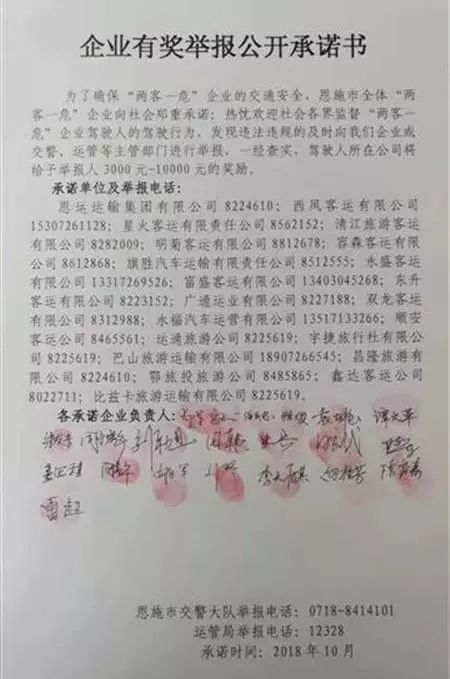 企业有奖举报公开承诺书
为了确保“两客一危”企业的交通安全，恩施市全体“两
客一危”企业向社会郑重承诺：热忱欢迎社会各界监督“两客一
危”企业驾驶人的驾驶行为，发现违法违规的及时向我们企业或
交警、运管等主管部门进行举报，一经查实，驾驶人所在公司将
给予举报人 3000 元-10000 元的奖励。
承诺单位及举报电话：
恩运运输集团有限公司 8224610；西凤客运有限公司
15307261128；星火客运有限责任公司 8562152；清江旅游客运
有限公司 8282009；明菊客运有限公司 8812678；容森客运有限
公司 8612868；旗胜汽车运输有限责任公司 8512555；永盛客运
有限公司 13317269526；富盛客运有限公司 13403045268；东升
客运有限公司 8223152；广通运业有限公司 8227188；双龙客运有
限公司 8312988；永福汽车运营有限公司 13517133266；顺安
客运有限公司 8465561；运通旅游公司 8225619；宇捷旅行社有
限公司 8225619；巴山旅游运输有限公司 18907266545；昌隆旅游有
限公司 8224610；鄂旅投旅游公司 8485865；鑫达客运有限公司
8022711；比兹卡旅游运输有限公司 8225619。
各承诺企业负责人：
恩施市交警大队举报电话：0718-8414101
运管局举报电话：12328
承诺时间：2018 年 10 月